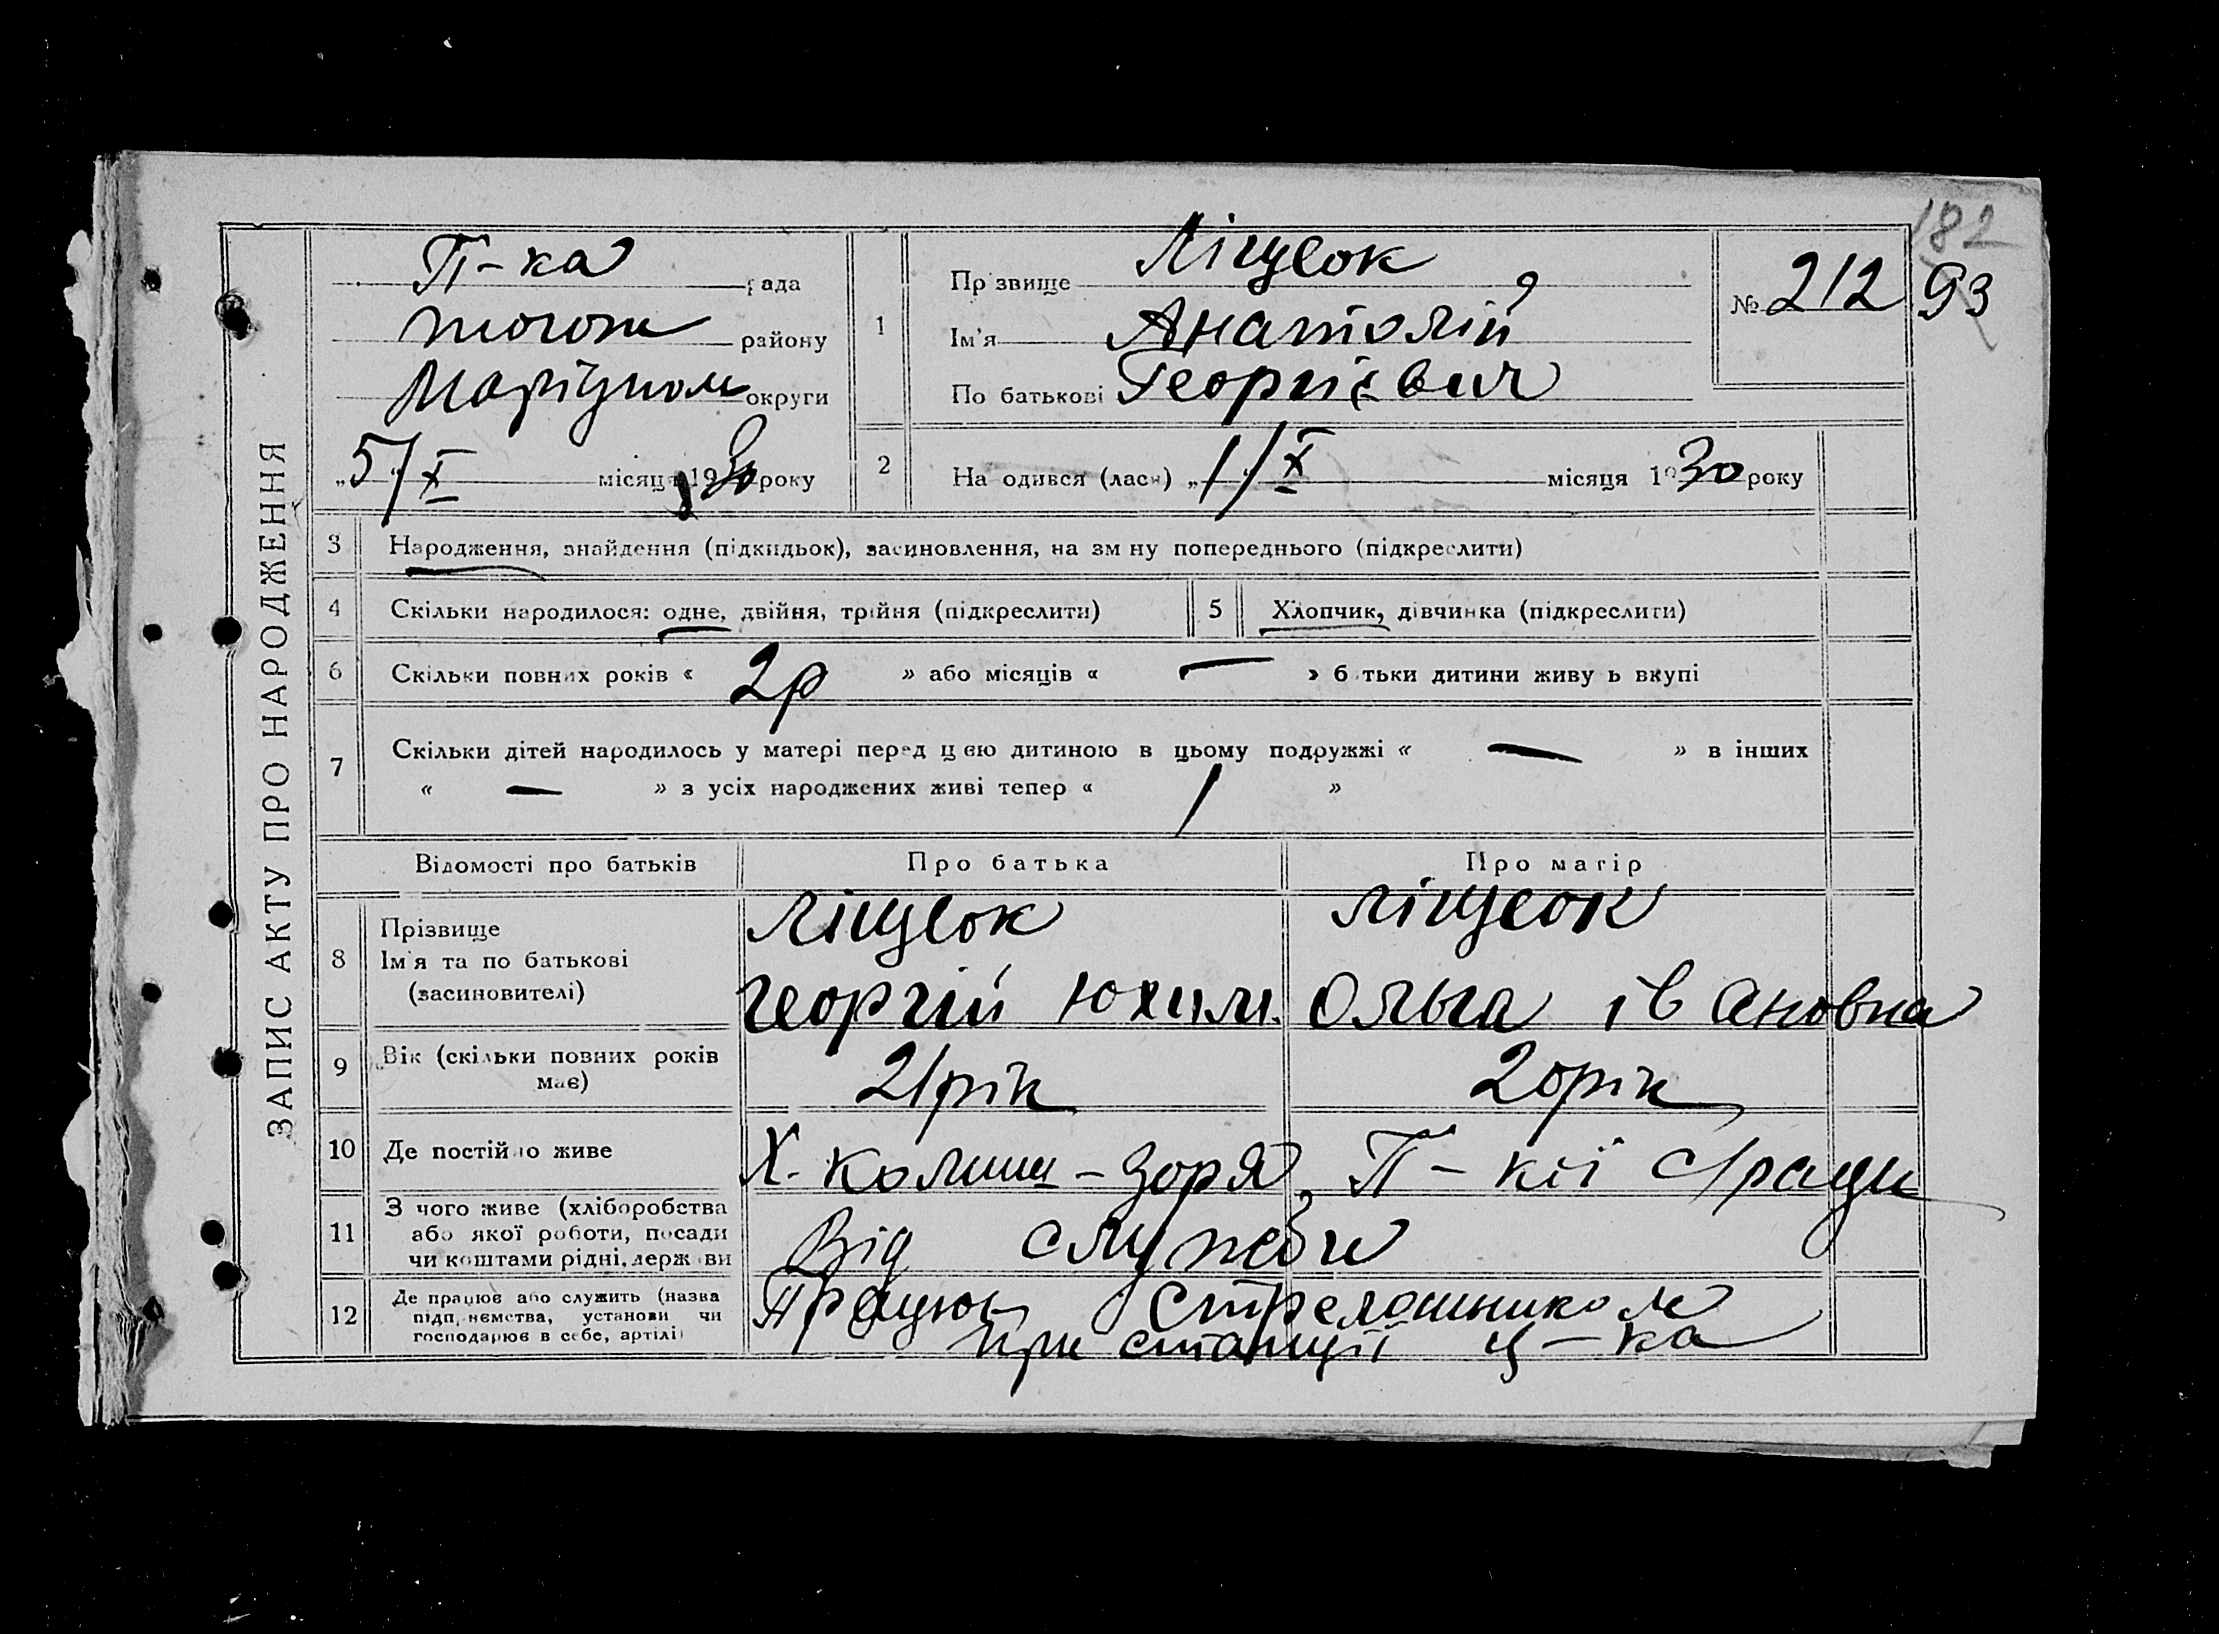 182
ЗАПИС АКТУ ПРО НАРОДЖЕННЯ
П-ка рада
району
Маріупол округи
„5/X місяця 1930 року
1
Прізвище Ліщеок
Ім'я Анатолій
По батькові Георгієвич
№ 212 93
2
Народився (лася) „1/X місяця 1930 року
3 Народження, знайдення (підкидьок), засиновлення, на зміну попереднього (підкреслити)
4 Скільки народилося: одне, двійня, трійня (підкреслити) 5 Хлопчик, дівчинка (підкреслити)
6 Скільки повних років « 2р » або місяців « — » батьки дитини живуть вкупі
7 Скільки дітей народилось у матері перед цією дитиною в цьому подружжі « — » в інших
« — » з усіх народжених живі тепер « 1 »
Відомості про батьків Про батька Про матір
8 Прізвище Ім'я та по батькові (засиновителі)
Ліщеок Ліщеок
Георгій Юхим. Ольга івановна
9 Вік (скільки повних років має) 21 рік 20 рік
10 Де постійно живе Х. -Зоря, П-кої с/ради
11 З чого живе (хліборобства або якої роботи, посади чи коштами рідні, держави Від служби
12 Де працює або служить (назва підприємства, установи чи господарює в себе, артілі) Працює Стрелошником
при станції ц-ка